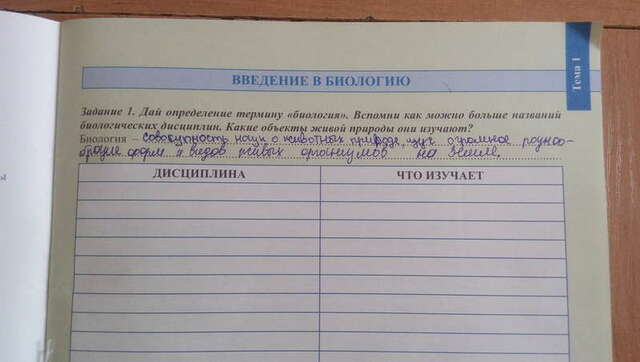 Тема 1
ВВЕДЕНИЕ В БИОЛОГИЮ
Задание 1. Дай определение термину «биология». Вспомни как можно больше названий
биологических дисциплин. Какие объекты живой природы они изучают?
Биология – совокупность наук о животной природе, огромное разнооб-
разие форм и видов живых организмов на Земле.
ДИСЦИПЛИНА
ЧТО ИЗУЧАЕТ